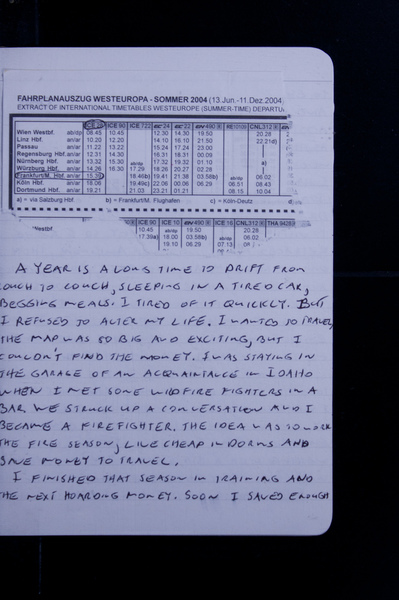 FAHRPLANAUSZUG WESTEUROPA - SOMMER 2004 (13.Jun.-11.Dez.2004)
EXTRACT OF INTERNATIONAL TIMETABLES WESTEUROPE (SUMMER-TIME) DEPARTU
ICE 28 ICE 90 ICE 722 EC 24 EC 22 EN 490 CNL312
Wien Westbf. ab/dp 08.45 10.45 12.30 14.30 19.50 20.28
Linz Hbf. an/ar 10.20 12.20 14.10 16.10 21.50 22.21d)
Passau an/ar 11.22 13.22 15.24 17.24 23.00
Regensburg Hbf. an/ar 12.31 14.30 16.31 18.31 00.09
Nürnberg Hbf. an/ar 13.32 15.30 ab/dp 17.32 19.32 01.10 a)
Würzburg Hbf. an/ar 14.26 16.30 17.29 18.26 20.27 02.28 ab/dp
Frankfurt/M. Hbf. an/ar 15.39 18.46b) 19.41 21.38 03.58b) 06.02
Köln Hbf. an/ar 18.06 19.49c) 22.06 00.06 06.29 06.51 08.43
Dortmund Hbf. an/ar 19.21 21.03 23.21 01.21 08.15 10.04
a) = via Salzburg Hbf b) = Frankfurt/M. Flughafen c) = Köln-Deutz d
ICE 90 ICE 10 EN 490 ICE 16 CNL312 THA 9428
Westbf. 10.45 19.50 20.28
17.39a) 18.00 03.58b) ab/dp 06.02
19.10 06.29 07.13
A YEAR IS A LONG TIME TO DRIFT FROM
COUCH TO COUCH, SLEEPING IN A TIRED CAR,
BEGGING MEALS. I TIRED OF IT QUICKLY. BUT
I REFUSED TO ALTER MY LIFE. I WANTED TO TRAVEL,
THE MAP WAS SO BIG AND EXCITING, BUT I
COULDN'T FIND THE MONEY. I WAS STAYING IN
THE GARAGE OF AN ACQUAINTANCE IN IDAHO
WHEN I MET SOME WILDFIRE FIGHTERS IN A
BAR. WE STRUCK UP A CONVERSATION AND I
BECAME A FIREFIGHTER. THE IDEA WAS TO WORK
THE FIRE SEASON, LIVE CHEAP IN DORMS AND
SAVE MONEY TO TRAVEL.
I FINISHED THAT SEASON IN TRAINING AND
THE NEXT HOARDING MONEY. SOON I SAVED ENOUGH